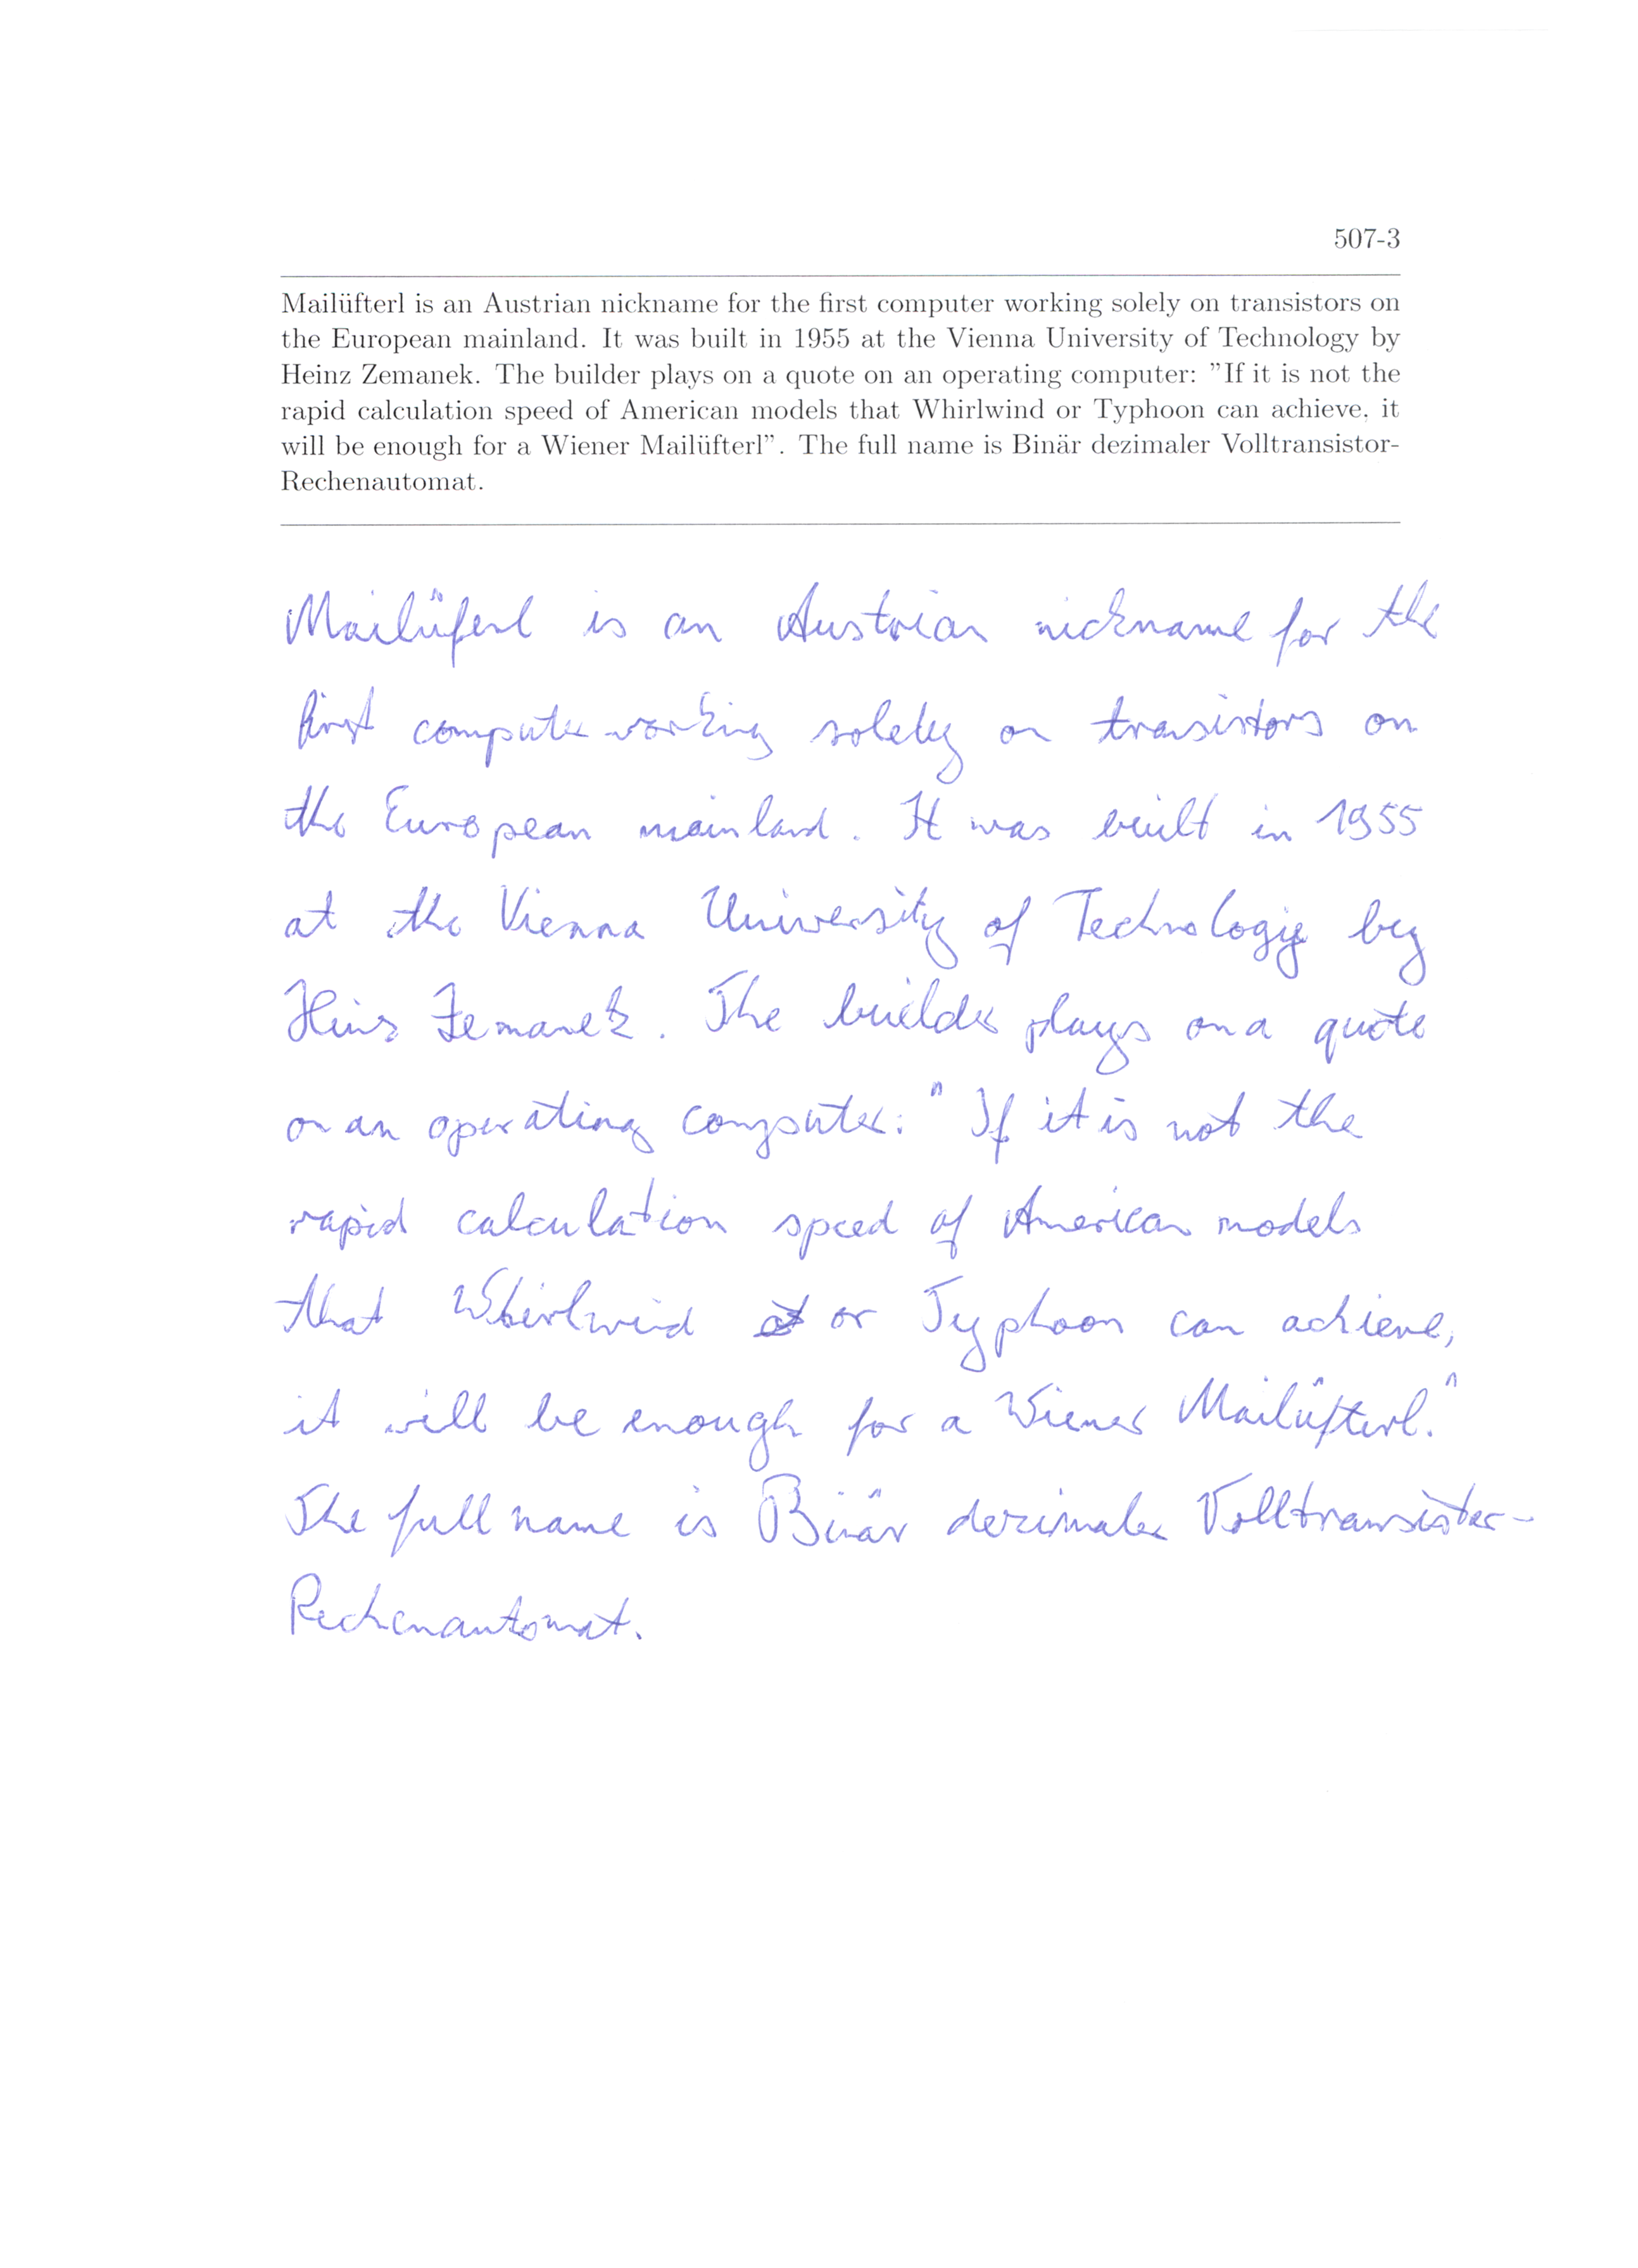 507-3
Mailüfterl is an Austrian nickname for the first computer working solely on transistors on
the European mainland. It was built in 1955 at the Vienna University of Technology by
Heinz Zemanek. The builder plays on a quote on an operating computer: ”If it is not the
rapid calculation speed of American models that Whirlwind or Typhoon can achieve, it
will be enough for a Wiener Mailüfterl”. The full name is Binär dezimaler Volltransistor-
Rechenautomat.
Mailüferl is an Austrian nickname for the
first computer working solely on transistors on
the European mainland. It was built in 1955
at the Vienna University of Technology by
Heinz Zemanek. The builder plays on a quote
on an operating computer: "If it is not the
rapid calculation speed of American models
that Whirlwind or Typhoon can achieve,
it will be enough for a Wiener Mailüfterl."
The full name is Binär dezimaler Volltransistor-
Rechenautomat.